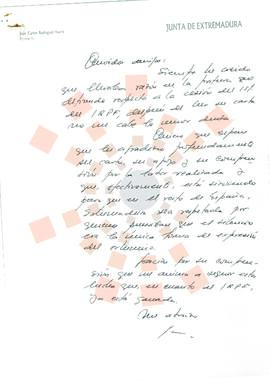 Juan Carlos Rodríguez Ibarra
JUNTA DE EXTREMADURA
Querido amigo:
Siempre he creído
que llevaba razón en la postura que
defiendo respecto a la cesión del 15%
del IRPF, después de leer su carta
no me cabe la menor duda.
Quiero que sepan
que les agradezco profundamente
su carta, su apoyo y su comprensión
por la labor realizada y
que, efectivamente, está sirviendo
para que en el resto de España,
Extremadura sea respetada por
quienes pensaban que el silencio
era la única forma de expresión
del extremeño.
Gracias por su comprensión
que me anima a seguir esta
lucha que, en cuanto al IRPF,
ya está ganada.
Un abrazo